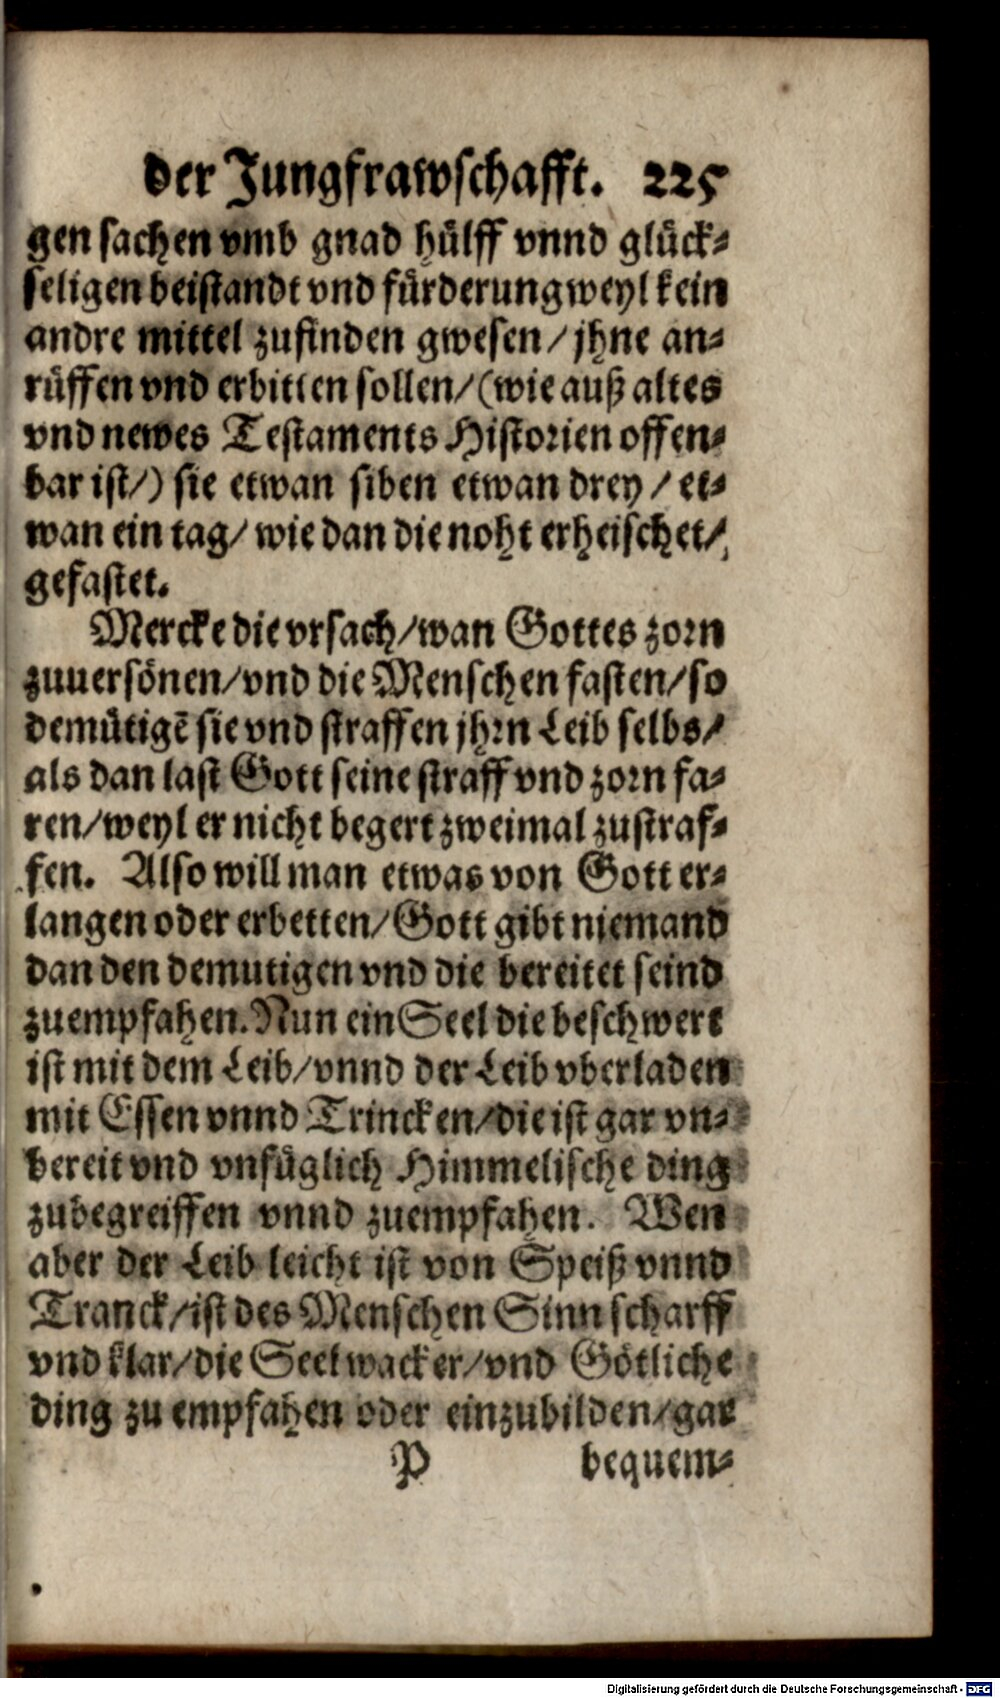 der Jungfrawschafft. 225
gen sachen vmb gnad hülff vnnd glück-
seligen beistandt vnd fürderung weyl kein
andre mittel zufinden gwesen / jhne an-
rüffen vnd erbitten sollen / (wie auß altes
vnd newes Testaments Historien offen-
bar ist /) sie etwan siben etwan drey / et-
wan ein tag / wie dan die noht erheischet /
gefastet.
Mercke die vrsach / wan Gottes zorn
zuuersönen / vnd die Menschen fasten / so
demütigē sie vnd straffen jhrn Leib selbs /
als dan last Gott seine straff vnd zorn fa-
ren / weyl er nicht begert zweimal zustraf-
fen. Also will man etwas von Gott er-
langen oder erbetten / Gott gibt niemand
dan den demutigen vnd die bereitet seind
zuempfahen. Nun ein Seel die beschwert
ist mit dem Leib / vnnd der Leib vberladen
mit Essen vnnd Trincken / die ist gar vn-
bereit vnd vnfüglich Himmelische ding
zubegreiffen vnnd zuempfahen. Wen
aber der Leib leicht ist von Speiß vnnd
Tranck / ist des Menschen Sinn scharff
vnd klar / die Seel wacker / vnd Götliche
ding zu empfahen oder einzubilden / gar
P bequem-
Digitalisierung gefördert durch die Deutsche Forschungsgemeinschaft - DFG